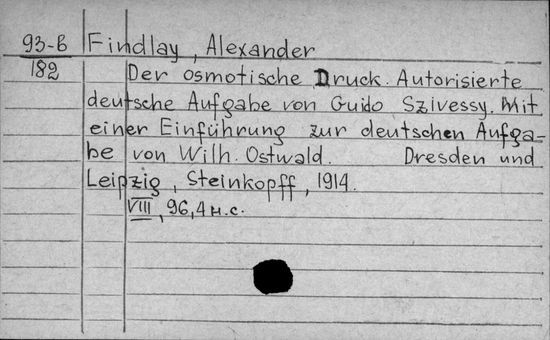 93-B Findlay, Alexander
182 Der osmotische Druck. Autorisierte
deutsche Aufgabe von Guido Szivessy. Mit
einer Einführung zur deutschen Aufga-
be von Wilh. Ostwald. Dresden und
Leipzig, Steinkopff, 1914.
VIII, 96, 4 н.с.